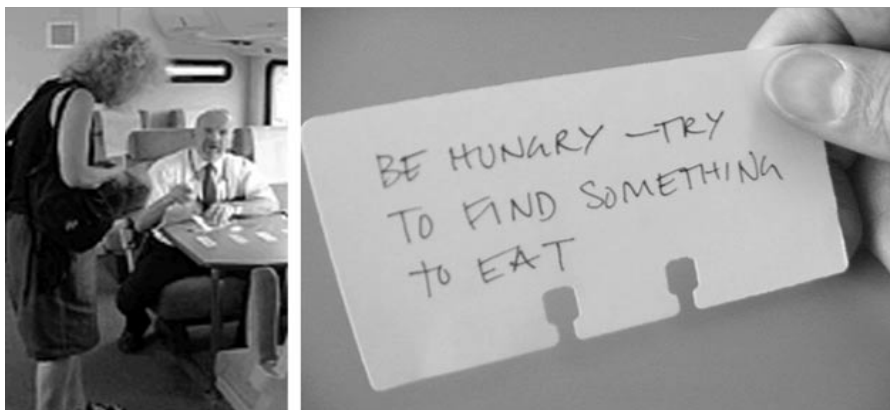 BE HUNGRY —TRY
TO FIND SOMETHING
TO EAT